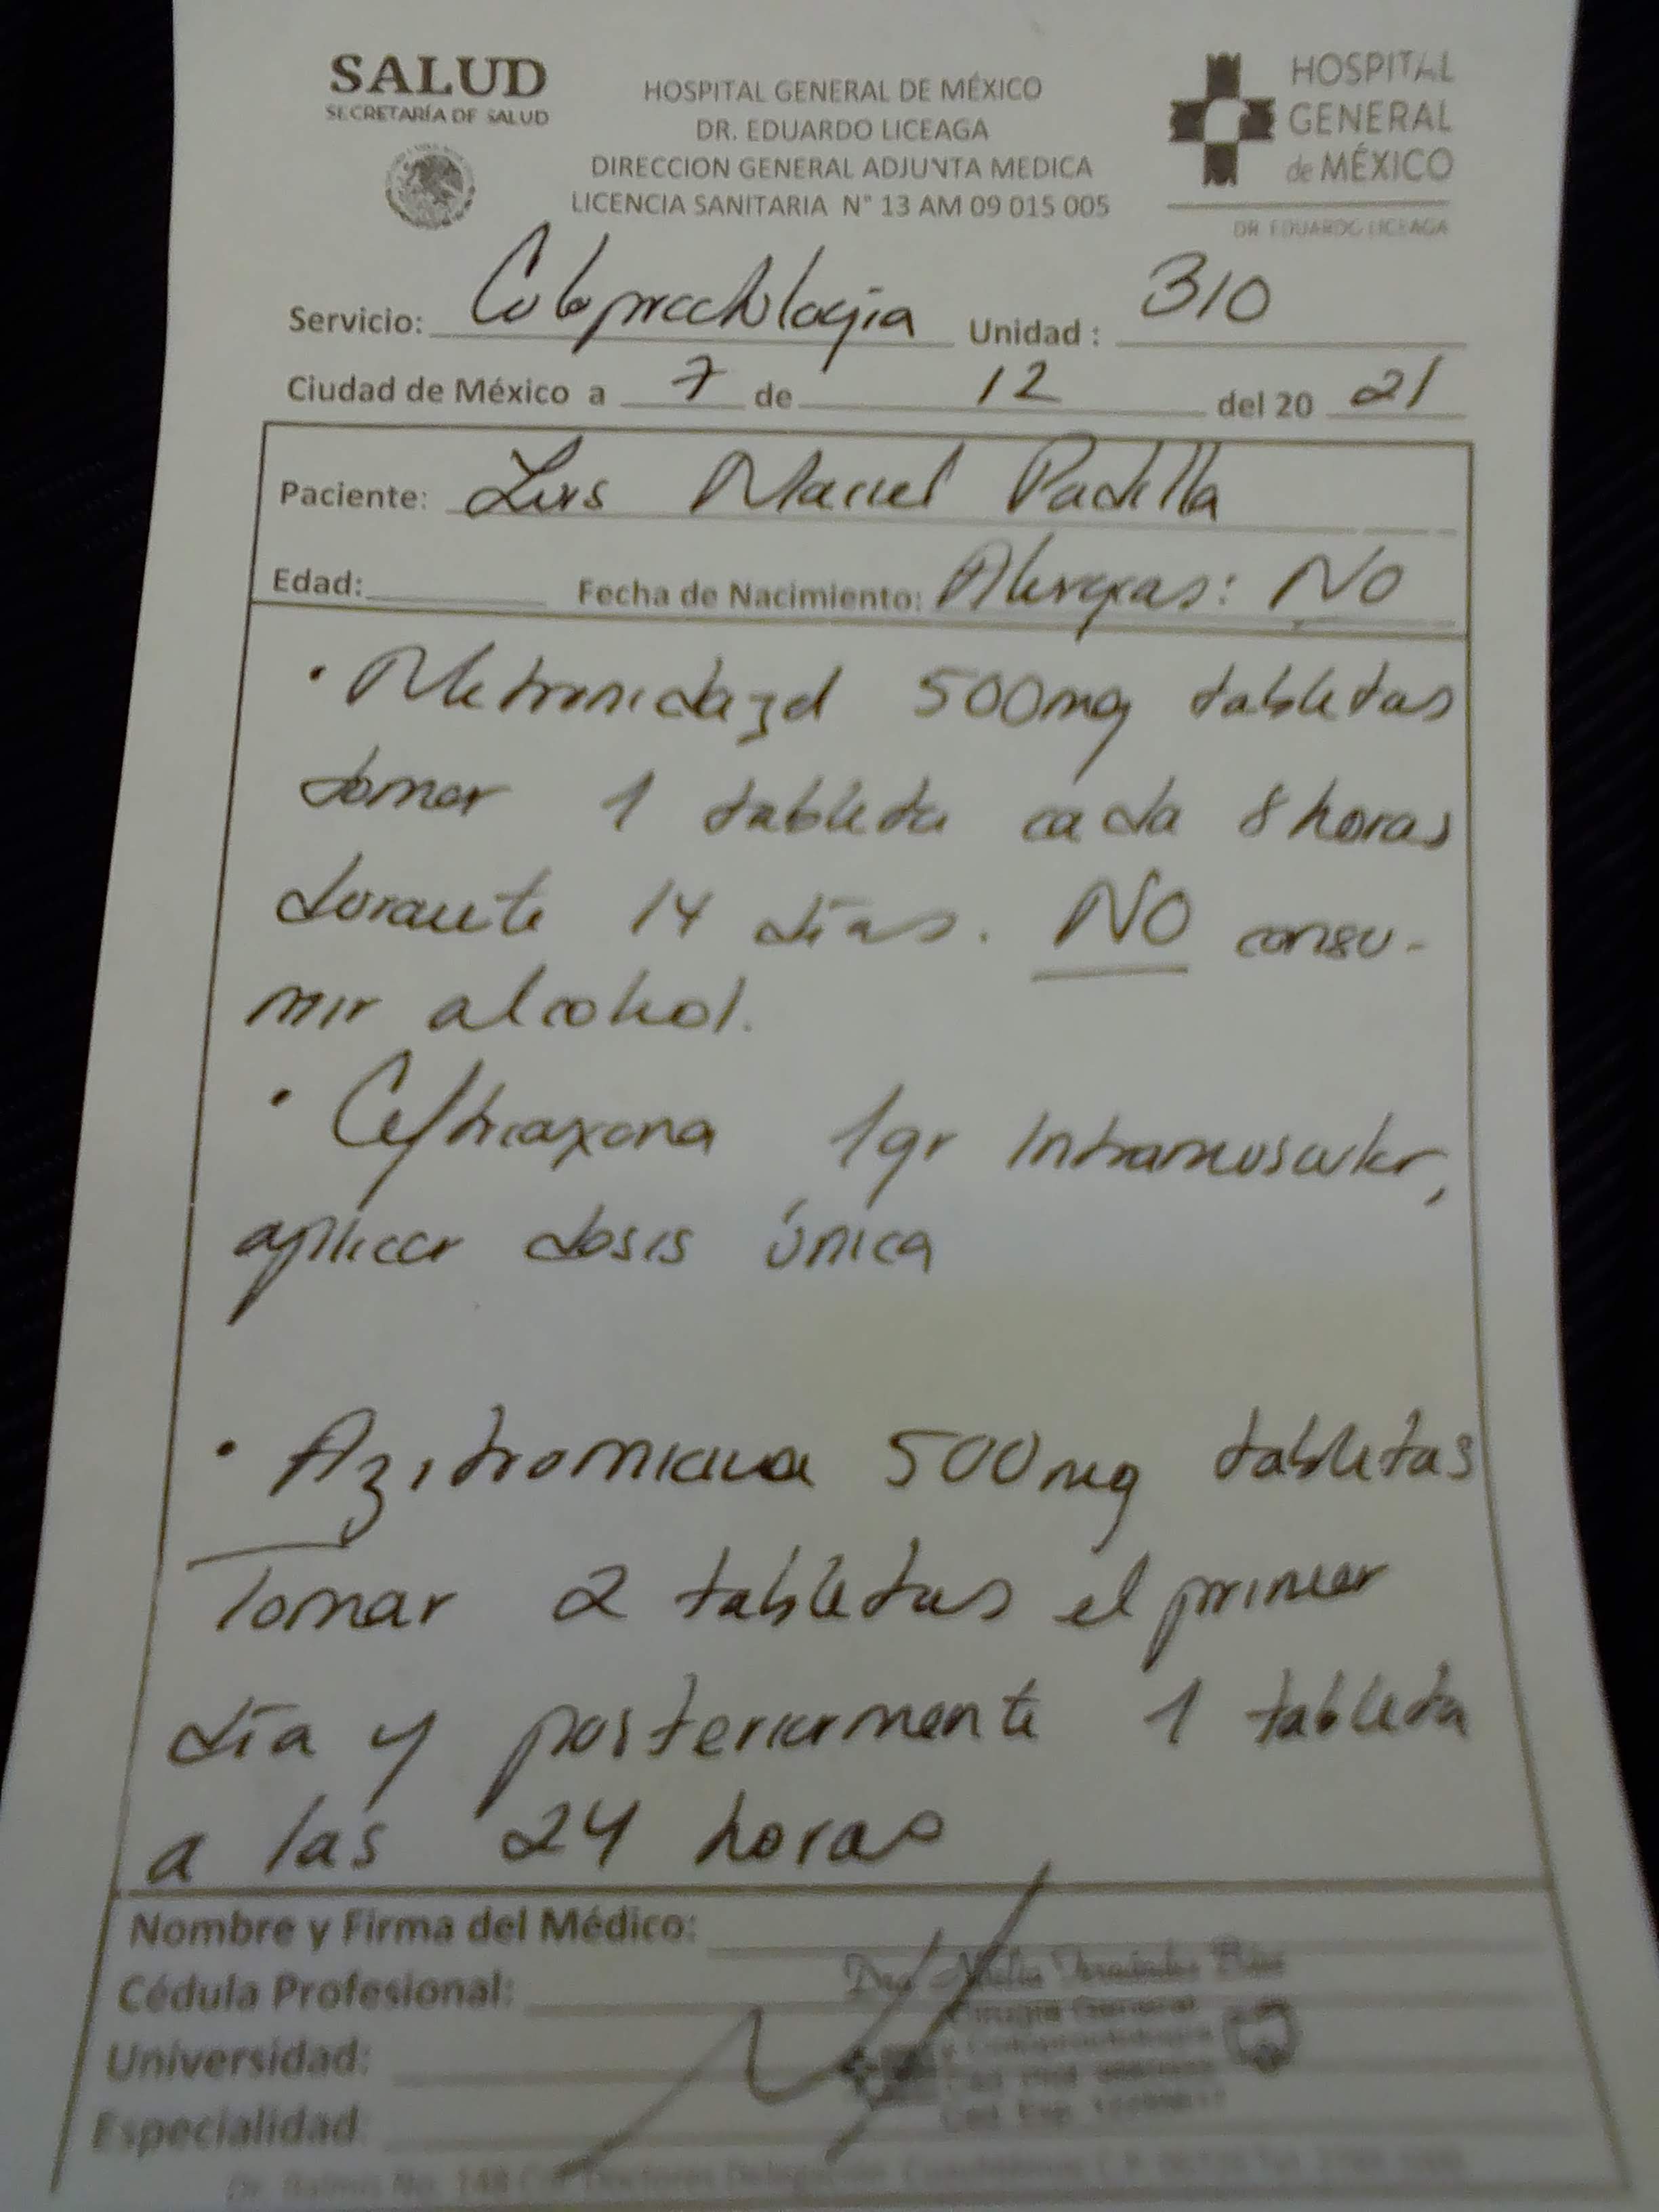 SALUD
SECRETARÍA DE SALUD
HOSPITAL GENERAL DE MÉXICO
DR. EDUARDO LICEAGA
DIRECCION GENERAL ADJUNTA MEDICA
LICENCIA SANITARIA N° 13 AM 09 015 005
HOSPITAL
GENERAL
de MÉXICO
DR. EDUARDO LICEAGA
Servicio: Coloproctología Unidad : 310
Ciudad de México a 7 de 12 del 20 21
Paciente: Luis Manuel Padilla
Edad: Fecha de Nacimiento: Alergias: NO
· Metronidazol 500mg tabletas
tomar 1 tableta cada 8 horas
durante 14 días. NO consu-
mir alcohol.
· Ceftriaxona 1gr Intramuscular,
aplicar dosis única
· Azitromicina 500mg tabletas
Tomar 2 tabletas el primer
día y posteriormente 1 tableta
a las 24 horas
Nombre y Firma del Médico:
Cédula Profesional:
Universidad:
Especialidad
Cirugía General
Dr. Balmis No. 148 Col. Doctores Delegación Cuauhtémoc C.P.